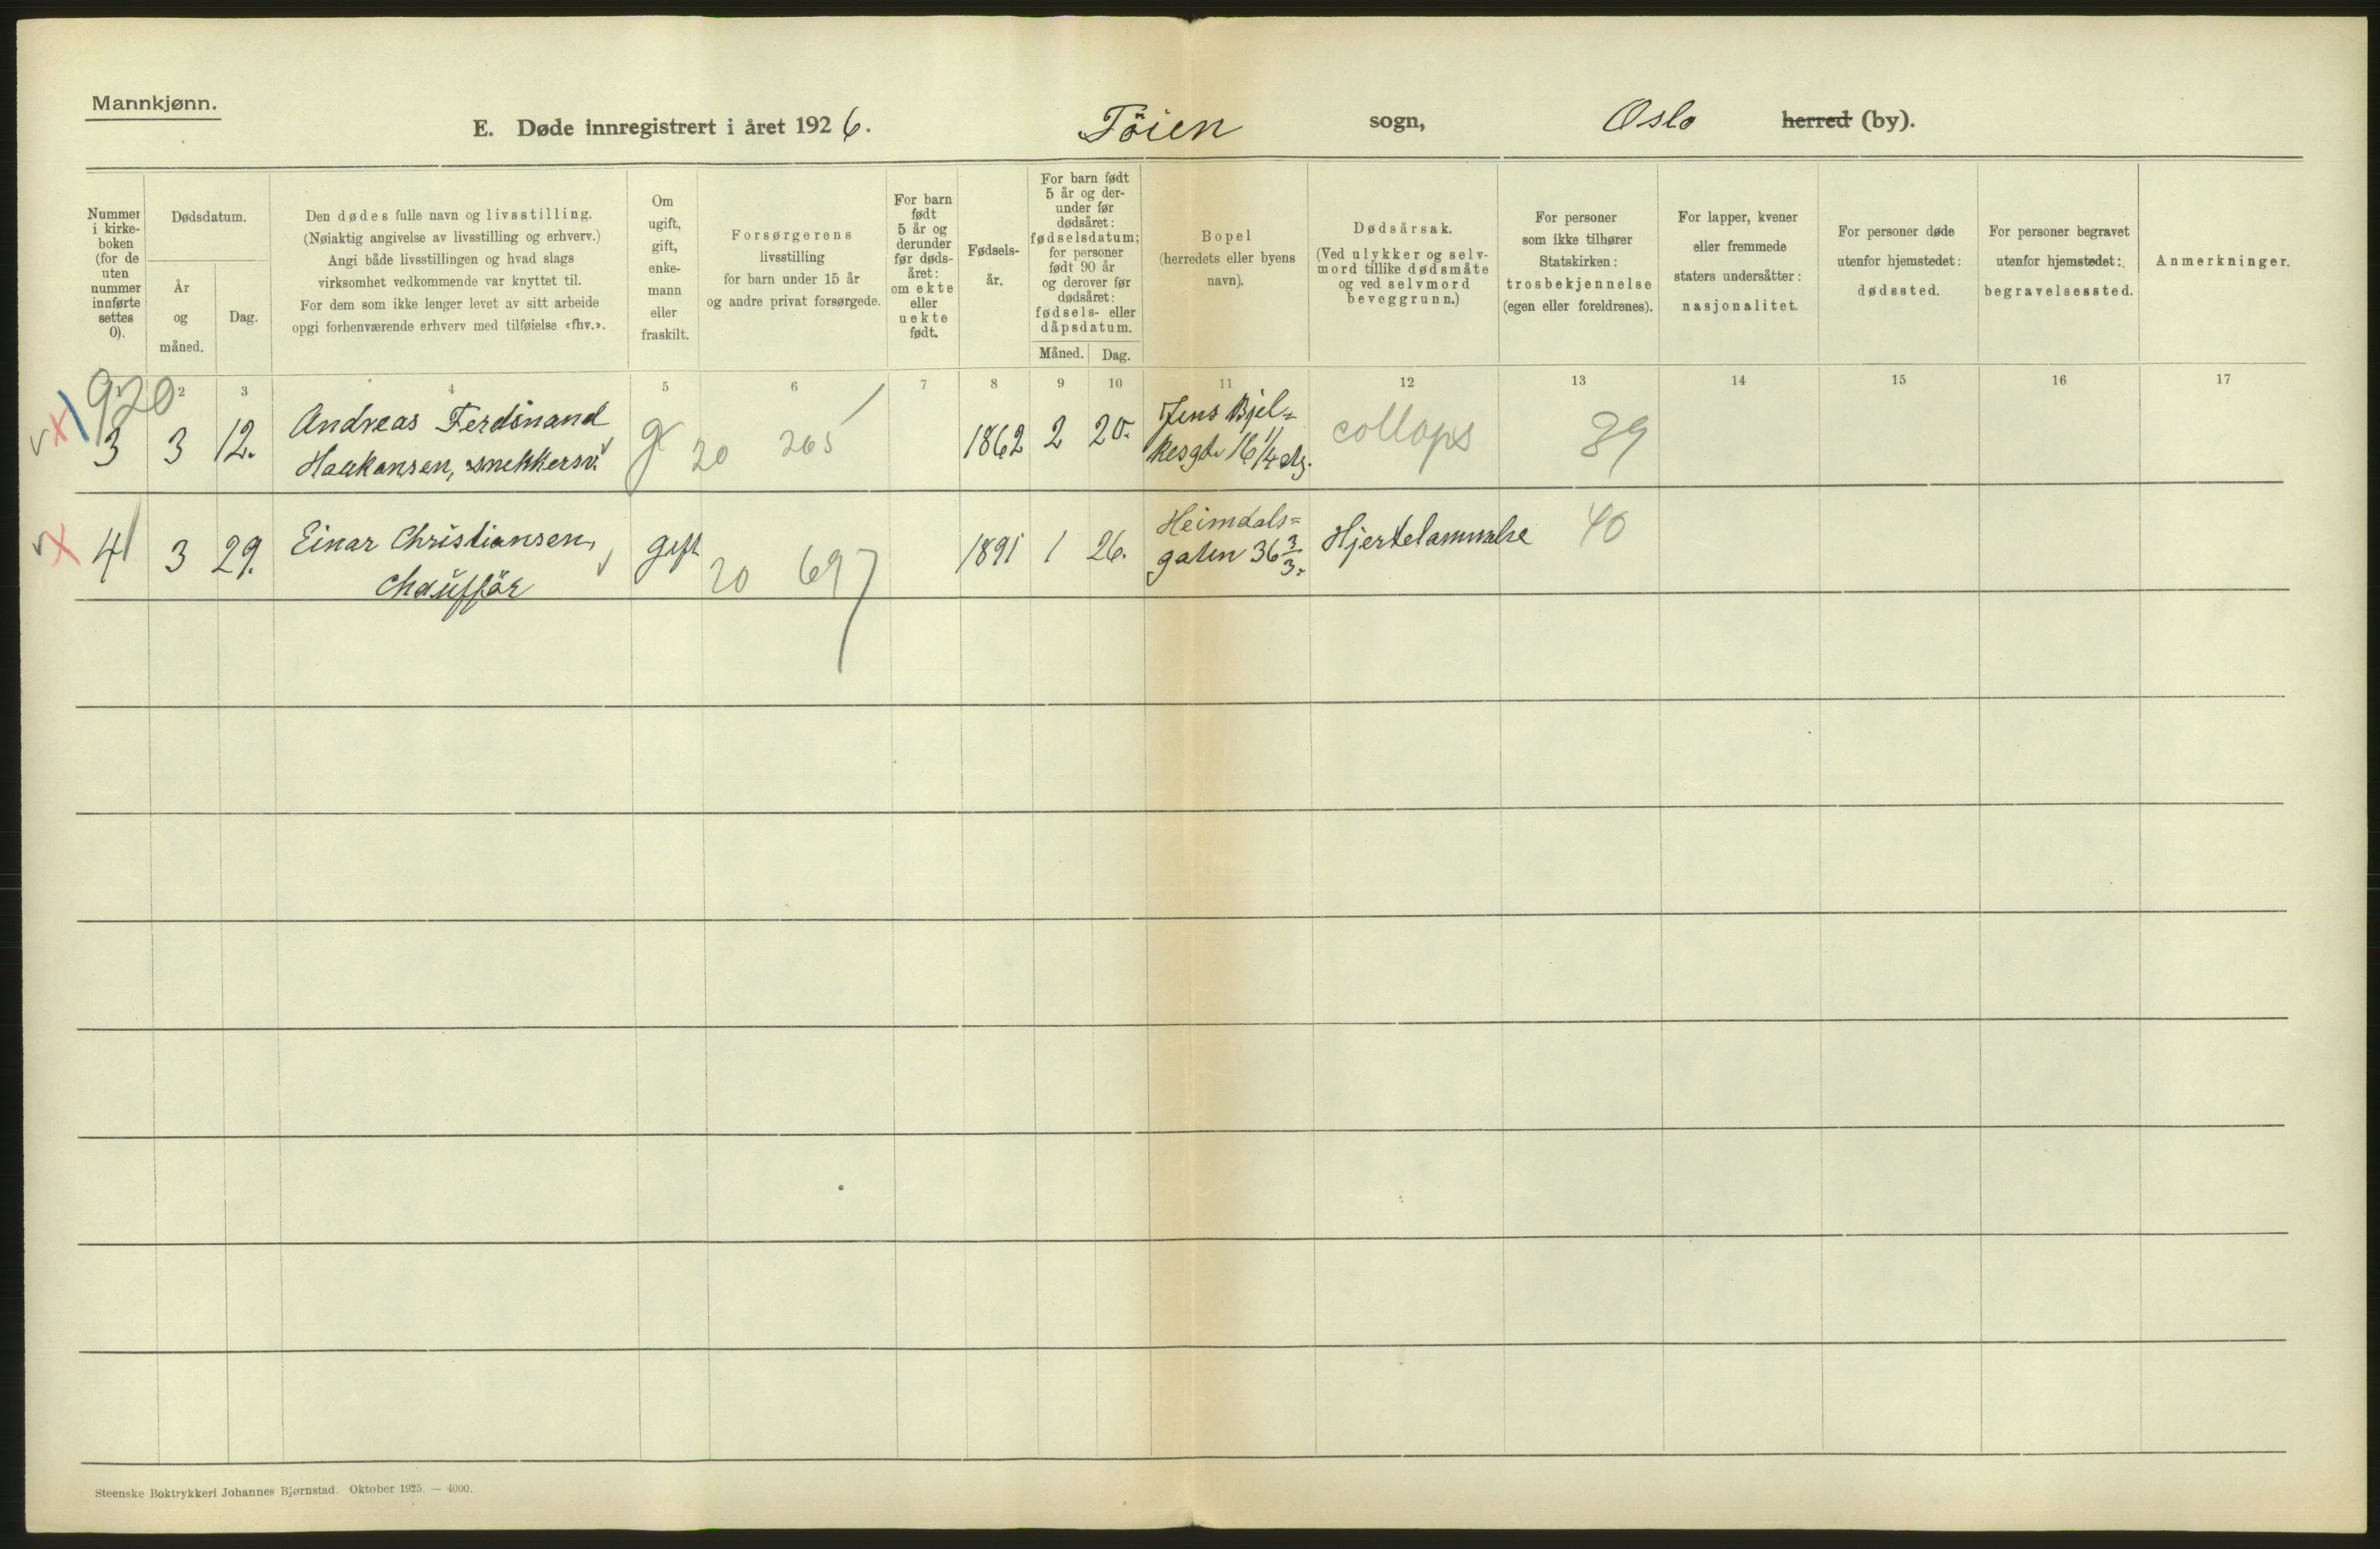 Mannkjønn.
E. Døde innregistrert i året 1926. Töien sogn, Oslo herred (by).
Nummer
i kirke-
boken
(for de
uten
nummer
innførte
settes
0).
Dødsdatum.
År
og
måned.
Dag.
Den dødes fulle navn og livsstilling.
(Nøiaktig angivelse av livsstilling og erhverv.)
Angi både livsstillingen og hvad slags
virksomhet vedkommende var knyttet til.
For dem som ikke lenger levet av sitt arbeide
opgi forhenværende erhverv med tilføielse «fhv.».
Om
ugift,
gift,
enke-
mann
eller
fraskilt.
Forsørgerens
livsstilling
for barn under 15 år
og andre privat forsørgede.
For barn
født
5 år og
derunder
før døds-
året:
om ekte
eller
uekte
født.
Fødsels-
år.
For barn født
5 år og der-
under før
dødsåret:
fødselsdatum;
for personer
født 90 år
og derover før
dødsåret:
fødsels- eller
dåpsdatum.
Måned. Dag.
Bopel
(herredets eller byens
navn).
Dødsårsak.
(Ved ulykker og selv-
mord tillike dødsmåte
og ved selvmord
beveggrunn.)
For personer
som ikke tilhører
Statskirken:
trosbekjennelse
(egen eller foreldrenes).
For lapper, kvener
eller fremmede
staters undersåtter:
nasjonalitet.
For personer døde
utenfor hjemstedet:
dødssted.
For personer begravet
utenfor hjemstedet:
begravelsessted.
Anmerkninger.
1 2 3 4 5 6 7 8 9 10 11 12 13 14 15 16 17
920
3 3 12. Andreas Ferdinand
Haakansen, snekkersv. g 20 265 1862 2 20. Jens Bjel=
kesgt. 16 1/4 collaps 89
4 3 29. Einar Christiansen,
Chaufför gift 20 697 1891 1 26. Heimdals=
gaten 36 3/3. Hjertelammelse 40
Steenske Boktrykkeri Johannes Bjørnstad. Oktober 1925. — 4000.